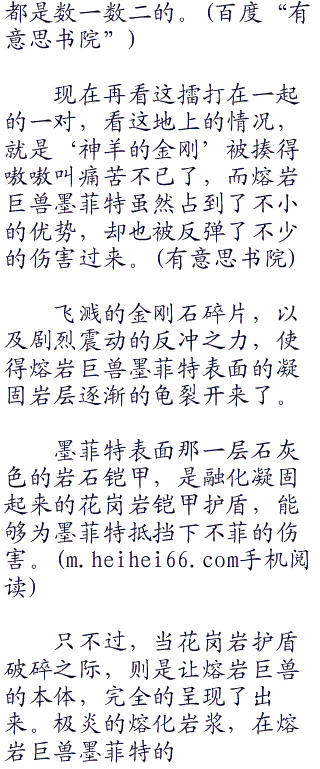 都是数一数二的。(百度“有
意思书院”)
现在再看这擂打在一起
的一对，看这地上的情况，
就是‘神羊的金刚’被揍得
嗷嗷叫痛苦不已了，而熔岩
巨兽墨菲特虽然占到了不小
的优势，却也被反弹了不少
的伤害过来。(有意思书院)
飞溅的金刚石碎片，以
及剧烈震动的反冲之力，使
得熔岩巨兽墨菲特表面的凝
固岩层逐渐的龟裂开来了。
墨菲特表面那一层石灰
色的岩石铠甲，是融化凝固
起来的花岗岩铠甲护盾，能
够为墨菲特抵挡下不菲的伤
害。(m.heihei66.com手机阅
读)
只不过，当花岗岩护盾
破碎之际，则是让熔岩巨兽
的本体，完全的呈现了出
来。极炎的熔化岩浆，在熔
岩巨兽墨菲特的